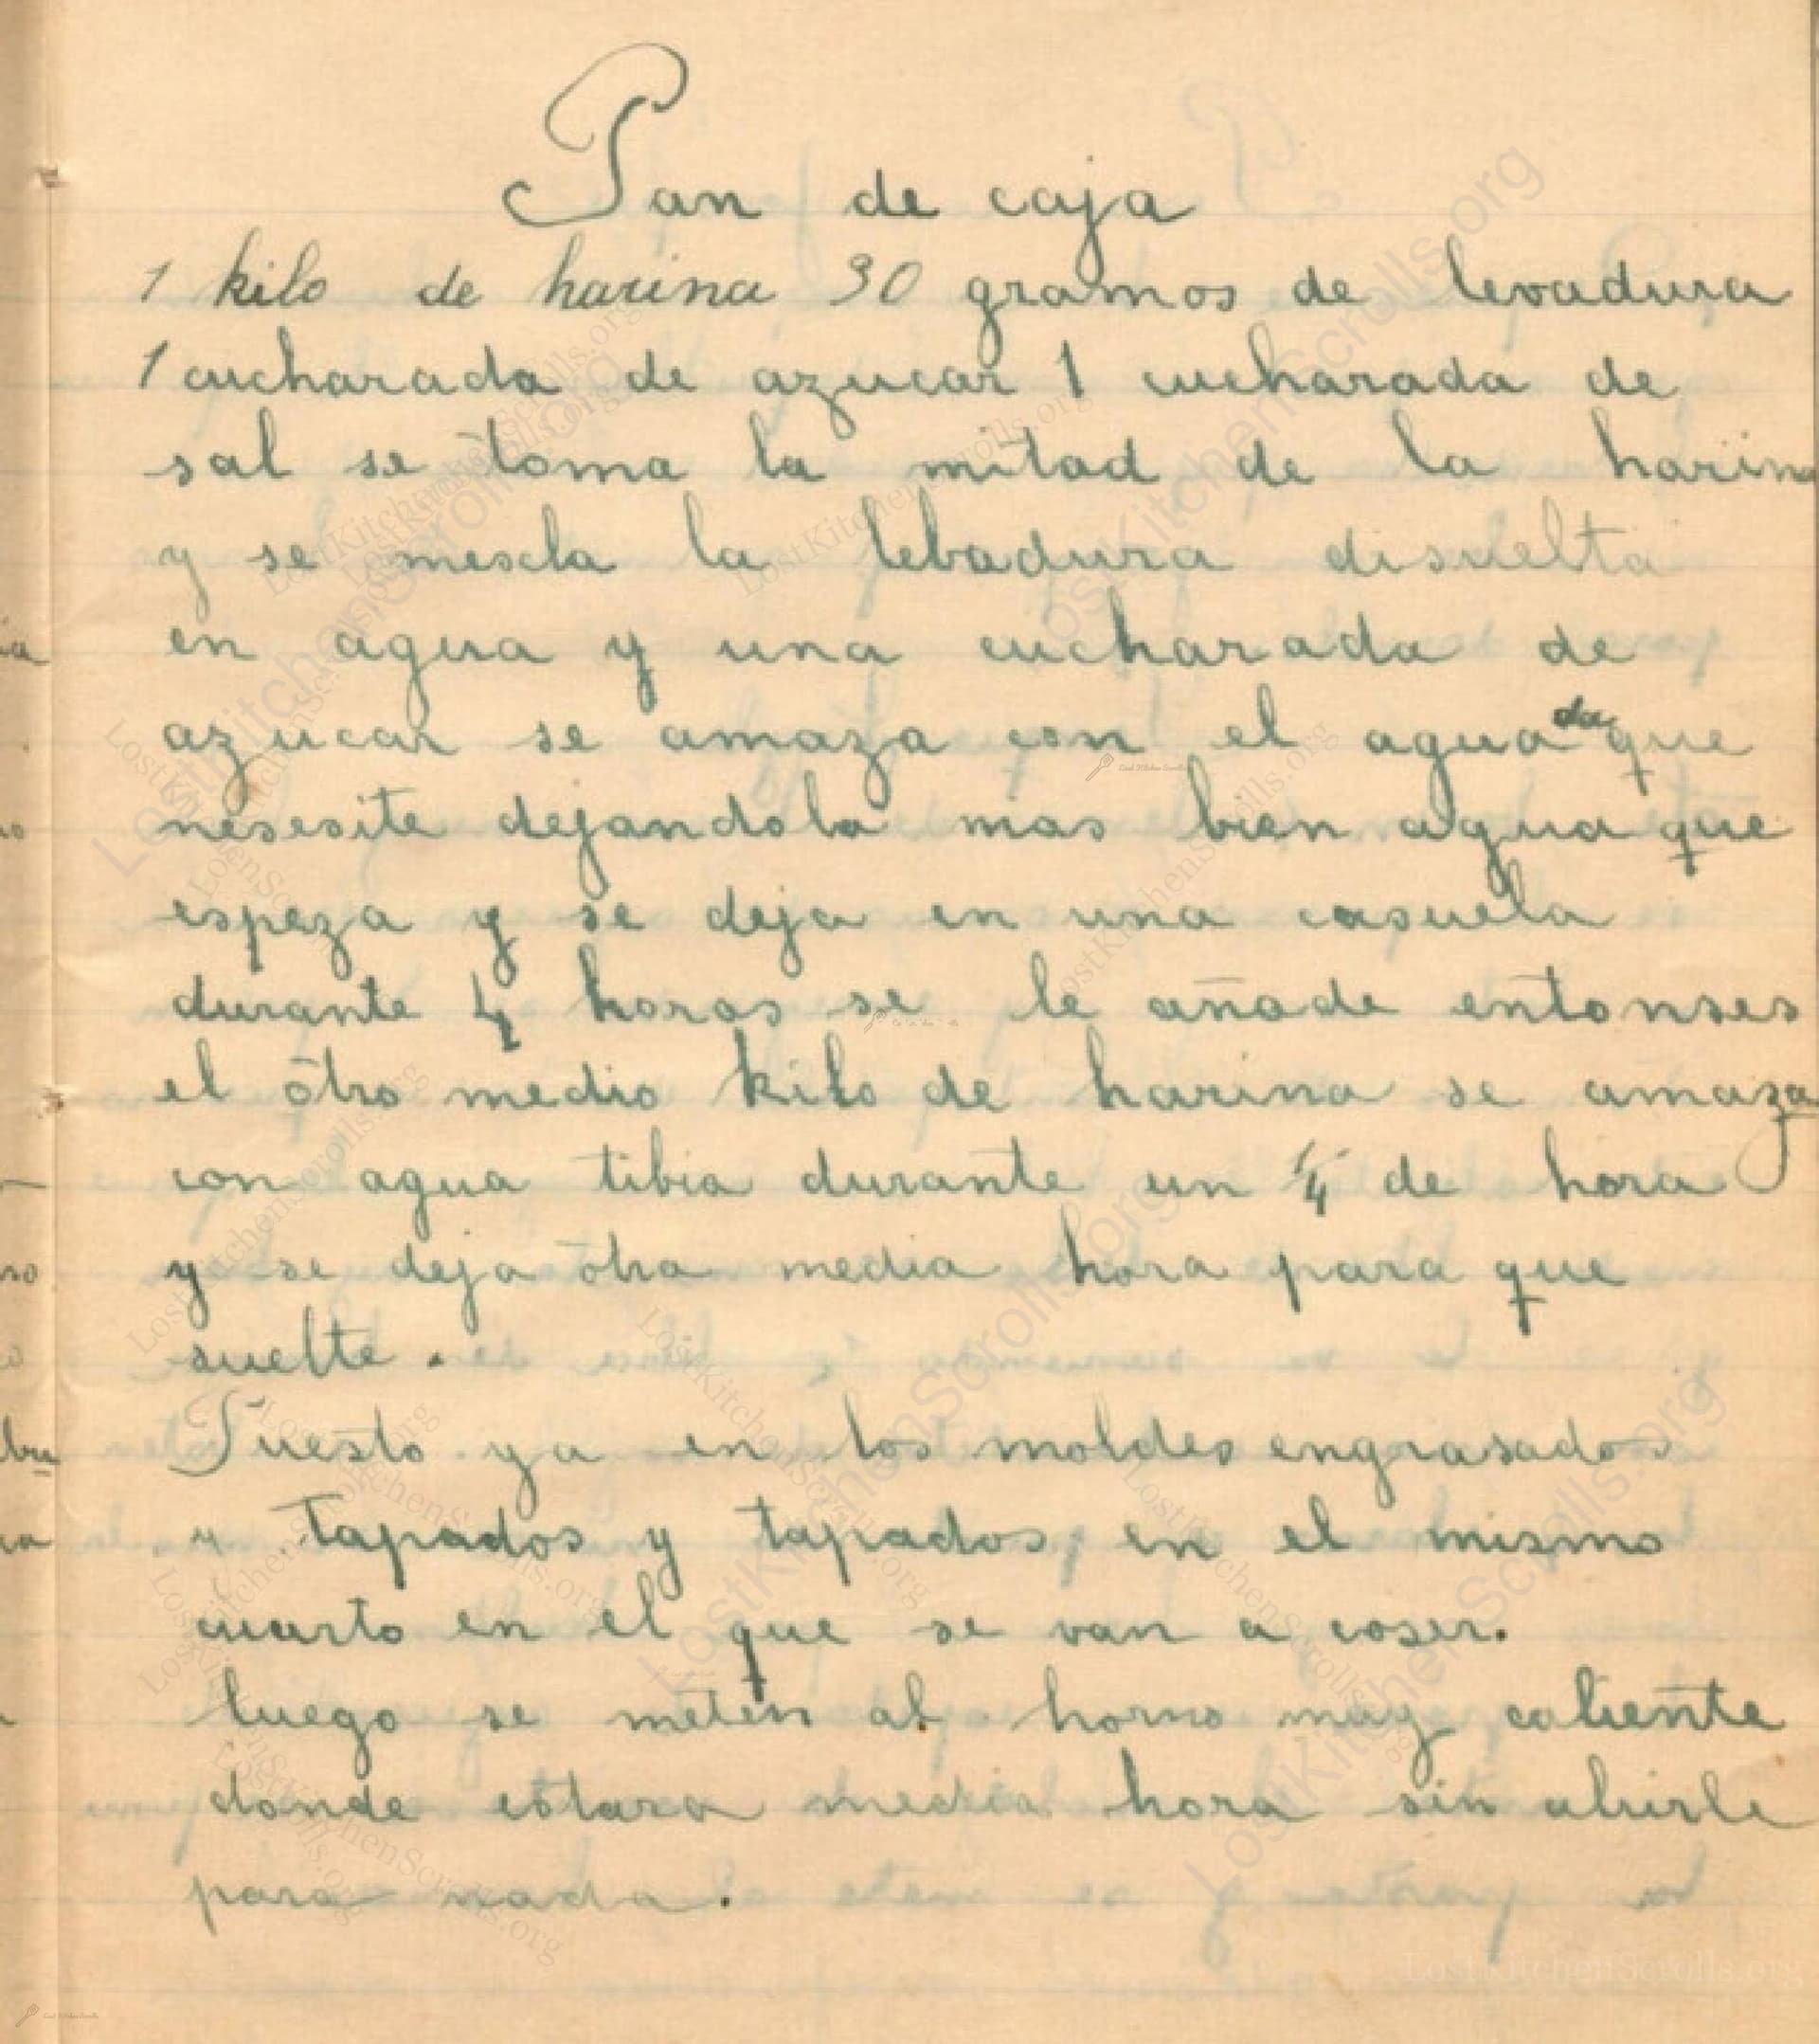 Pan de caja
1 kilo de harina 30 gramos de levadura
1 cucharada de azucar 1 cucharada de
sal se toma la mitad de la harina
y se mescla la lebadura disuelta
en agua y una cucharada de
azucar se amaza con el agua que
nesesite dejandola mas bien agua que
espeza y se deja en una casuela
durante 4 horas se le añade entonses
el otro medio kilo de harina se amaza
con agua tibia durante un 1/4 de hora
y se deja otra media hora para que
suelte.
Puesto ya en los moldes engrasados
y tapados y tapados en el mismo
cuarto en el que se van a coser.
luego se meten al horno muy caliente
donde estara media hora sin abrirle
para nada.
LostKitchenScrolls.org